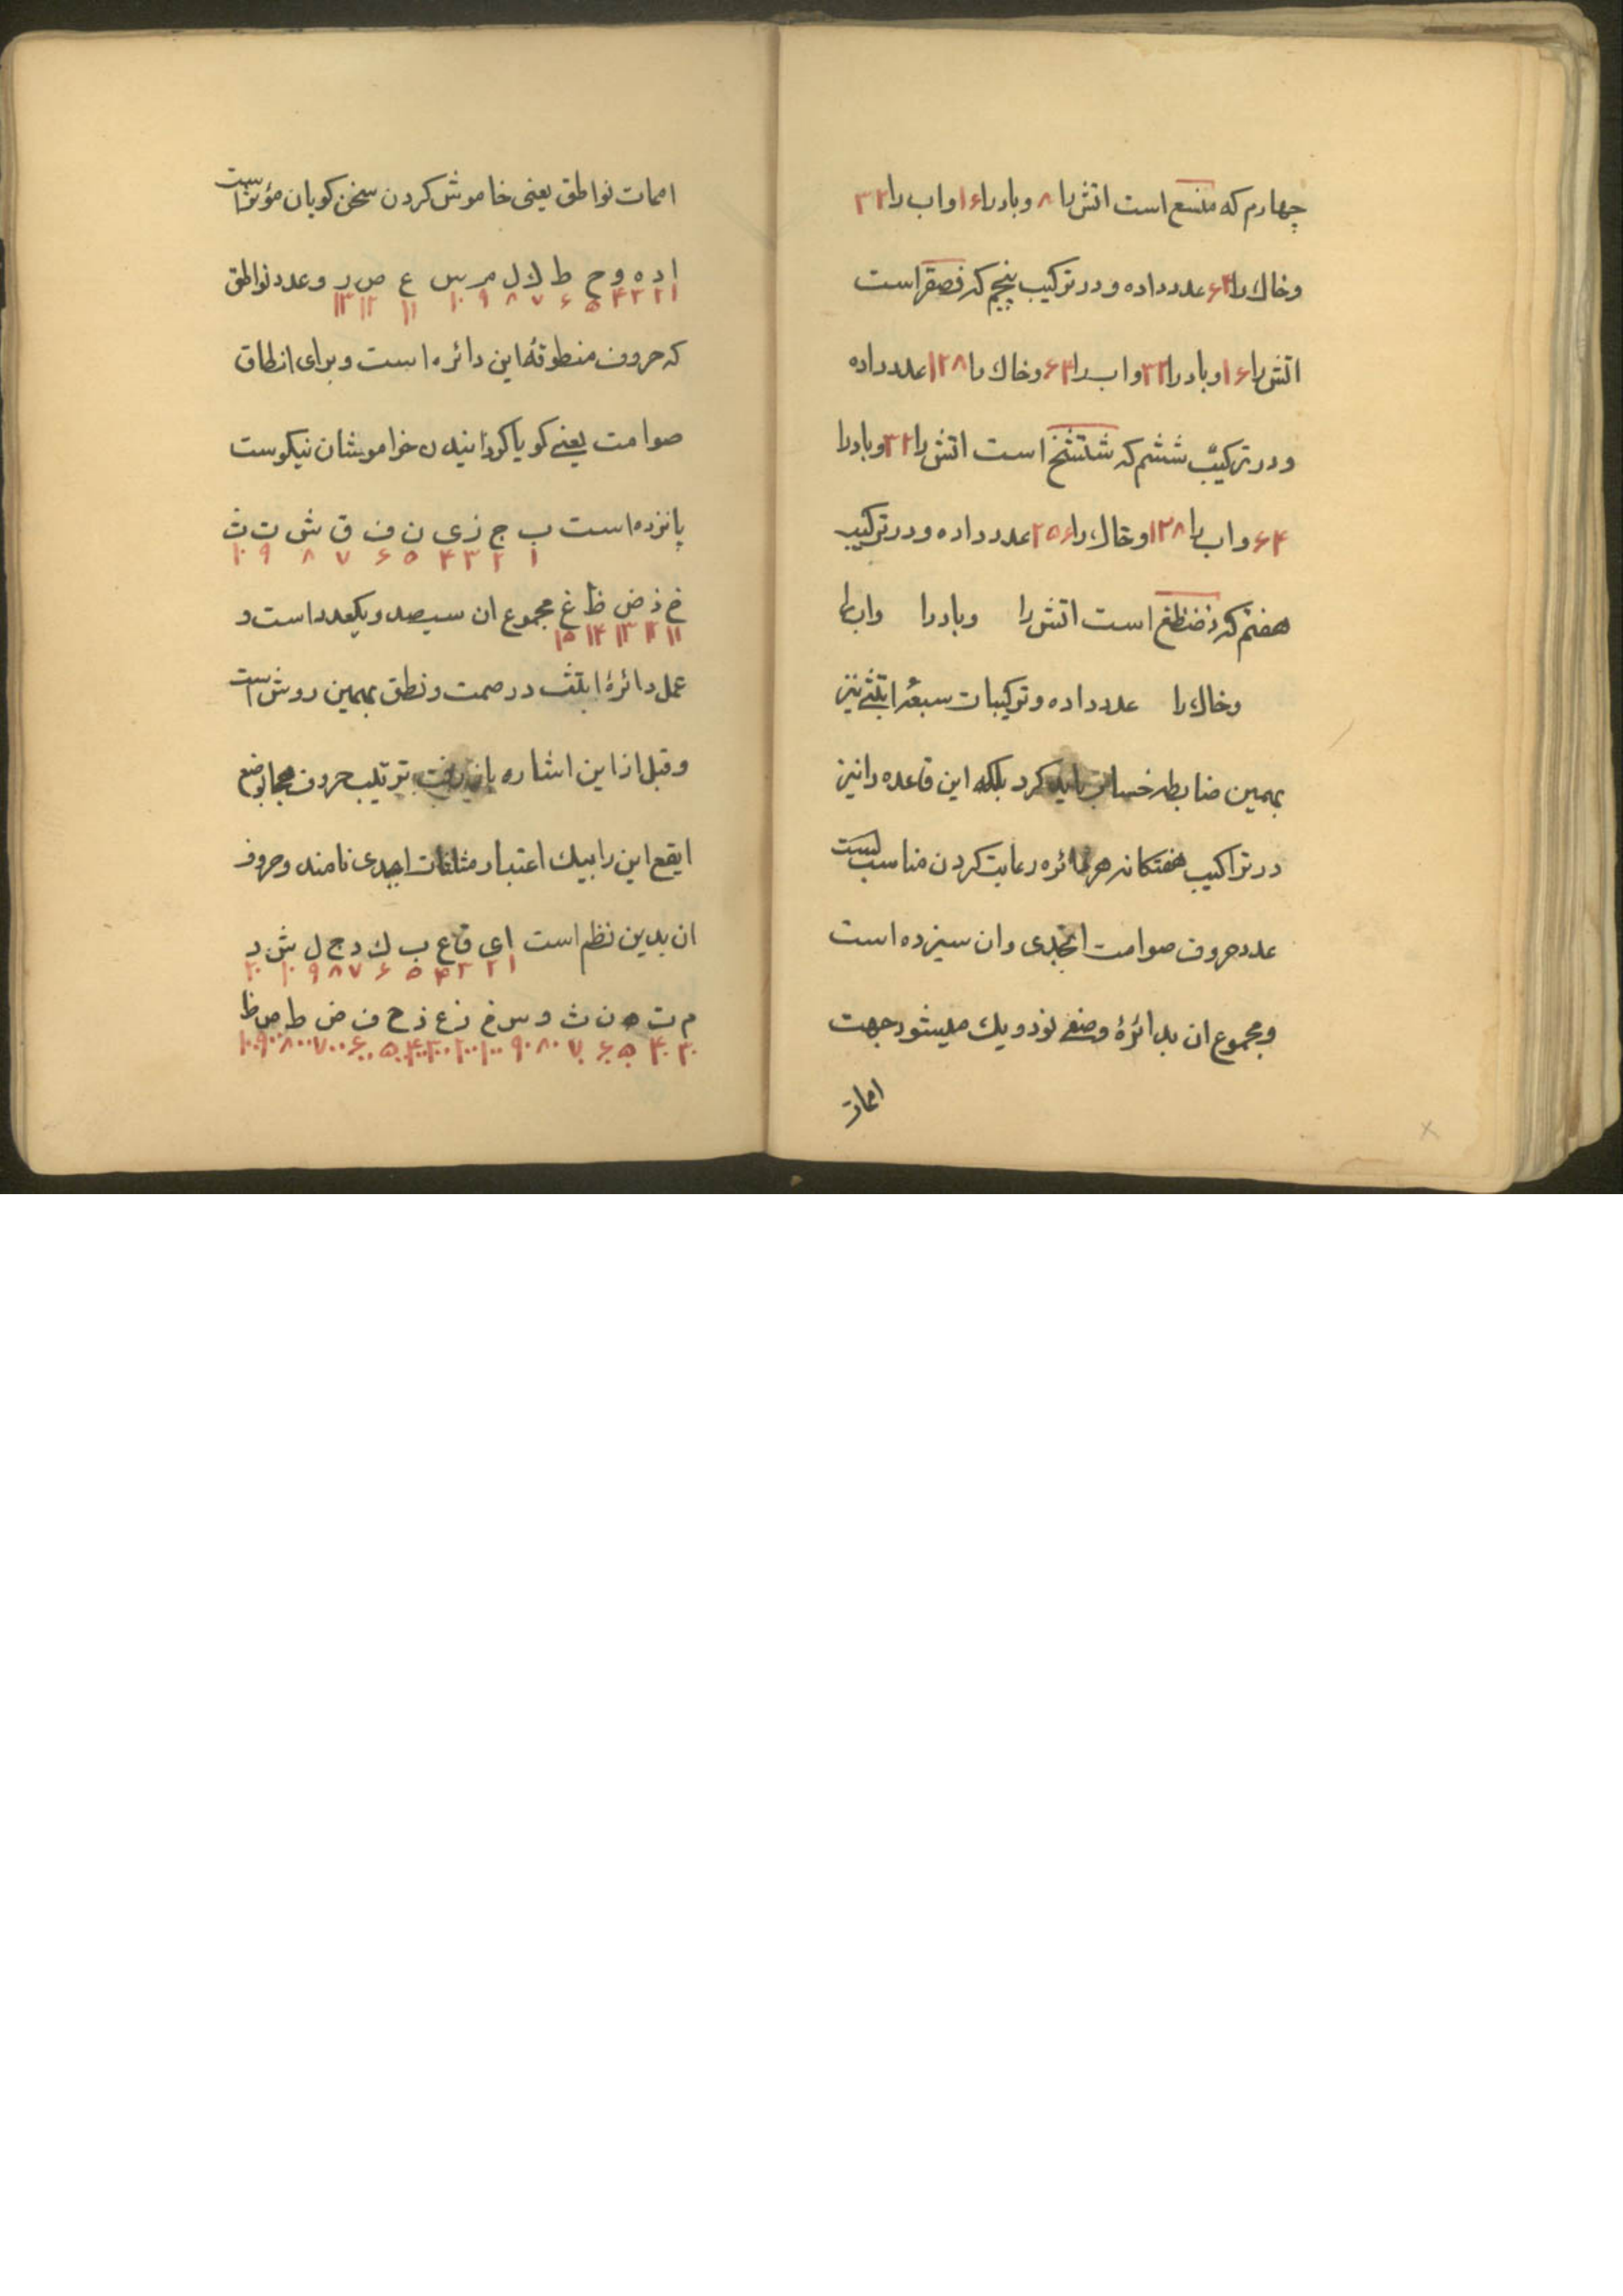 چهارم که منسع است اتش را ۸ و باد را ۱۶ و اب را ۳۲
و خاك را ۶۴ عدد داده و در ترکیب پنجم که فصقر است
اتش را ۱۶ و باد را ۳۲ و اب را ۶۴ و خاك را ۱۲۸ عدد داده
و در ترکیب ششم که شتثخ است اتش را ۳۲ و باد را
۶۴ و اب را ۱۲۸ و خاك را ۲۵۶ عدد داده و در ترکیب
هفتم که ذضظغ است اتش را و باد را و اب را
و خاك را عدد داده و ترکیبات سبعهٔ ابتثی نیز
بهمین ضابطه باید کرد بلکه این قاعده را نیز
در تراکیب هفتکانه هر دائره رعایت کردن مناسب
عدد حروف صوامت ابجدی و ان سیزده است
و مجموع ان بدائرهٔ وضعی نود و یك میشود جهت
اصمات
اصمات نواطق یعنی خاموش کردن سخن کویان مؤثر است
ا د ه و ح ط ك ل م س ع ص ر و عدد نواطق
۱ ۲ ۳ ۴ ۵ ۶ ۷ ۸ ۹ ۱۰ ۱۱ ۱۲ ۱۳
که حروف منطوقهٔ این دائره است و برای انطاق
صوامت یعنی کویا کردانیدن خواموشان نیکوست
پانزده است ب ج ز ی ن ف ق ش ت ث
۱ ۲ ۳ ۴ ۵ ۶ ۷ ۸ ۹ ۱۰
خ ذ ض ظ غ مجموع ان سیصد و یکعدد است و
۱۱ ۱۲ ۱۳ ۱۴ ۱۵
عمل دائرهٔ ابتث در صمت و نطق بهمین روش است
و قبل از این اشاره بان رفت ترتیب حروف هجا بوضع
ایقع این را بیك اعتبار مثلثات ابجدی نامند و حروف
ان بدین نظم است ا ی ق غ ب ك د ج ل ش د
۱ ۲ ۳ ۴ ۵ ۶ ۷ ۸ ۹ ۱۰ ۲۰
م ت ه ن ث و س خ ز ع ذ ح ف ض ط ص ظ
۳۰ ۴۰ ۵۰ ۶۰ ۷۰ ۸۰ ۹۰ ۱۰۰ ۲۰۰ ۳۰۰ ۴۰۰ ۵۰۰ ۶۰۰ ۷۰۰ ۸۰۰ ۹۰۰ ۱۰۰۰